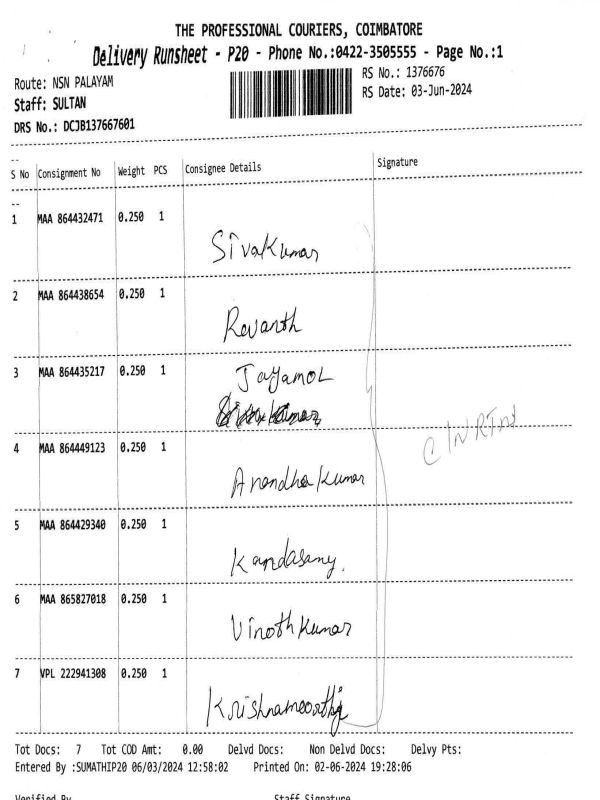 THE PROFESSIONAL COURIERS, COIMBATORE
Delivery Runsheet - P20 - Phone No.:0422-3505555 - Page No.:1
Route: NSN PALAYAM RS No.: 1376676
Staff: SULTAN RS Date: 03-Jun-2024
DRS No.: DCJB137667601
S No Consignment No Weight PCS Consignee Details Signature
1 MAA 864432471 0.250 1
Sivakumar
2 MAA 864438654 0.250 1
Revanth
3 MAA 864435217 0.250 1 Jayamol
4 MAA 864449123 0.250 1
Anandha Kumar
5 MAA 864429340 0.250 1
Kandasamy.
6 MAA 865827018 0.250 1
Vinoth Kumar
7 VPL 222941308 0.250 1
Krishnamoorthy
Tot Docs: 7 Tot COD Amt: 0.00 Delvd Docs: Non Delvd Docs: Delvy Pts:
Entered By :SUMATHIP20 06/03/2024 12:58:02 Printed On: 02-06-2024 19:28:06
Verified By Staff Signature